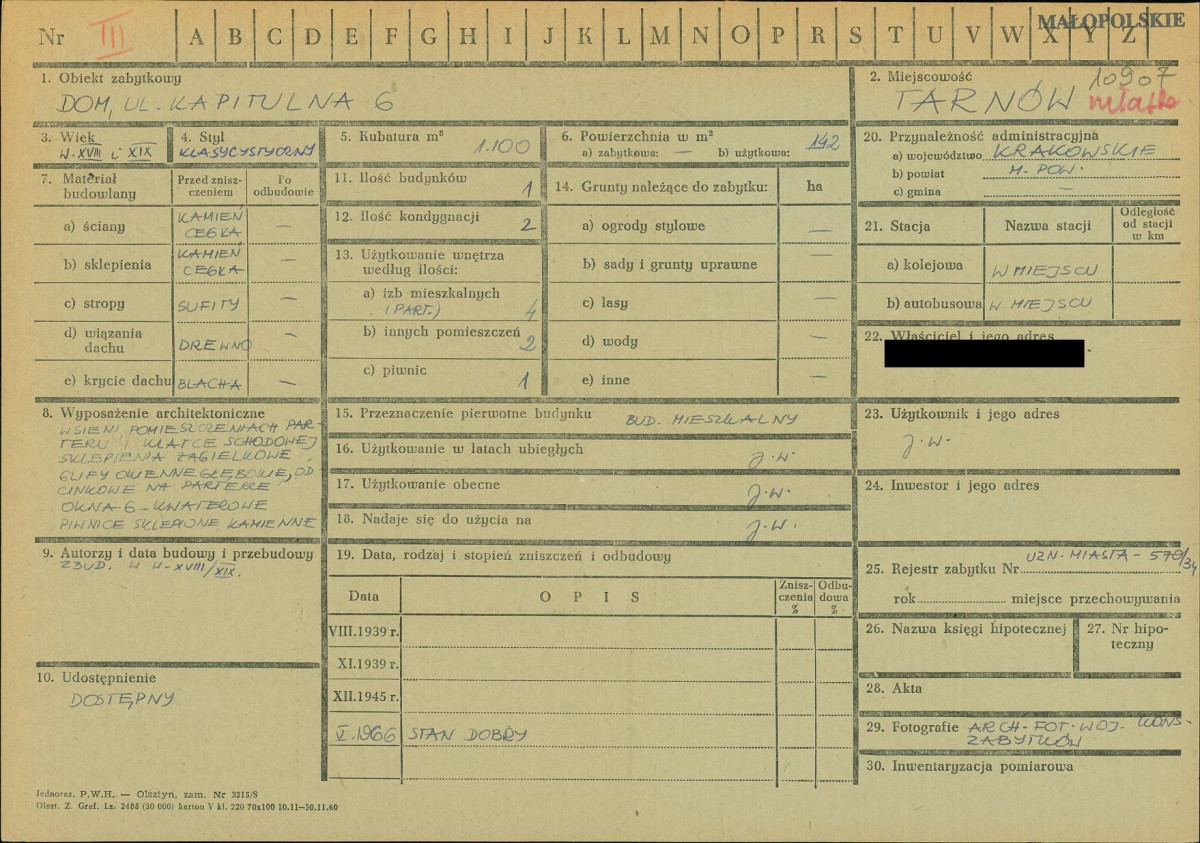 Nr III A B C D E F G H I J K L M N O P R S T U V W X Y Z
MAŁOPOLSKIE
1. Obiekt zabytkowy
DOM, UL. KAPITULNA 6
2. Miejscowość 10907
TARNÓW
3. Wiek
W. XVIII i XIX
4. Styl
KLASYCYSTYCZNY
5. Kubatura m³
1.100
6. Powierzchnia w m²
a) zabytkowa: — b) użytkowa: 192
20. Przynależność administracyjna
a) województwo KRAKOWSKIE
b) powiat M. POW.
c) gmina —
7. Materiał budowlany
Przed zniszczeniem
Po odbudowie
a) ściany KAMIEŃ CEGŁA —
b) sklepienia KAMIEŃ CEGŁA —
c) stropy SUFITY —
d) wiązania dachu DREWNO —
e) krycie dachu BLACHA —
11. Ilość budynków 1
12. Ilość kondygnacji 2
13. Użytkowanie wnętrza
według ilości:
a) izb mieszkalnych
(PART.) 4
b) innych pomieszczeń 2
c) piwnic 1
14. Grunty należące do zabytku: ha
a) ogrody stylowe —
b) sady i grunty uprawne —
c) lasy —
d) wody —
e) inne —
21. Stacja Nazwa stacji Odległość od stacji w km
a) kolejowa W MIEJSCU
b) autobusowa W MIEJSCU
22. Właściciel i jego adres
8. Wyposażenie architektoniczne
W SIENI POMIESZCZENIACH PAR-
TERU I KLATCE SCHODOWEJ
SKLEPIENIA ŻAGIELKOWE
GLIFY OKIENNE GŁĘBOKIE, OD
CINKOWE NA PARTERZE
OKNA 6-KWATEROWE
PIWNICE SKLEPIONE KAMIENNE
15. Przeznaczenie pierwotne budynku BUD. MIESZKALNY
16. Użytkowanie w latach ubiegłych J.W.
17. Użytkowanie obecne J.W.
18. Nadaje się do użycia na J.W.
23. Użytkownik i jego adres
J.W.
24. Inwestor i jego adres
9. Autorzy i data budowy i przebudowy
ZBUD. W W. XVIII/XIX.
19. Data, rodzaj i stopień zniszczeń i odbudowy
Data O P I S Zniszczenia % Odbudowa %
VIII.1939 r.
XI.1939 r.
XII.1945 r.
V.1966 STAN DOBRY
10. Udostępnienie
DOSTĘPNY
UZN. MIASTA - 570/34
25. Rejestr zabytku Nr
rok miejsce przechowywania
26. Nazwa księgi hipotecznej
27. Nr hipoteczny
28. Akta
29. Fotografie ARCH. FOT. WOJ. KONS.
ZABYTKÓW
30. Inwentaryzacja pomiarowa
Jednoraz. P.W.H. — Olsztyn, zam. Nr 3215/S
Olszt. Z. Graf. Lz. 2488 (30 000) karton V kl. 220 70x100 10.11—30.11.60